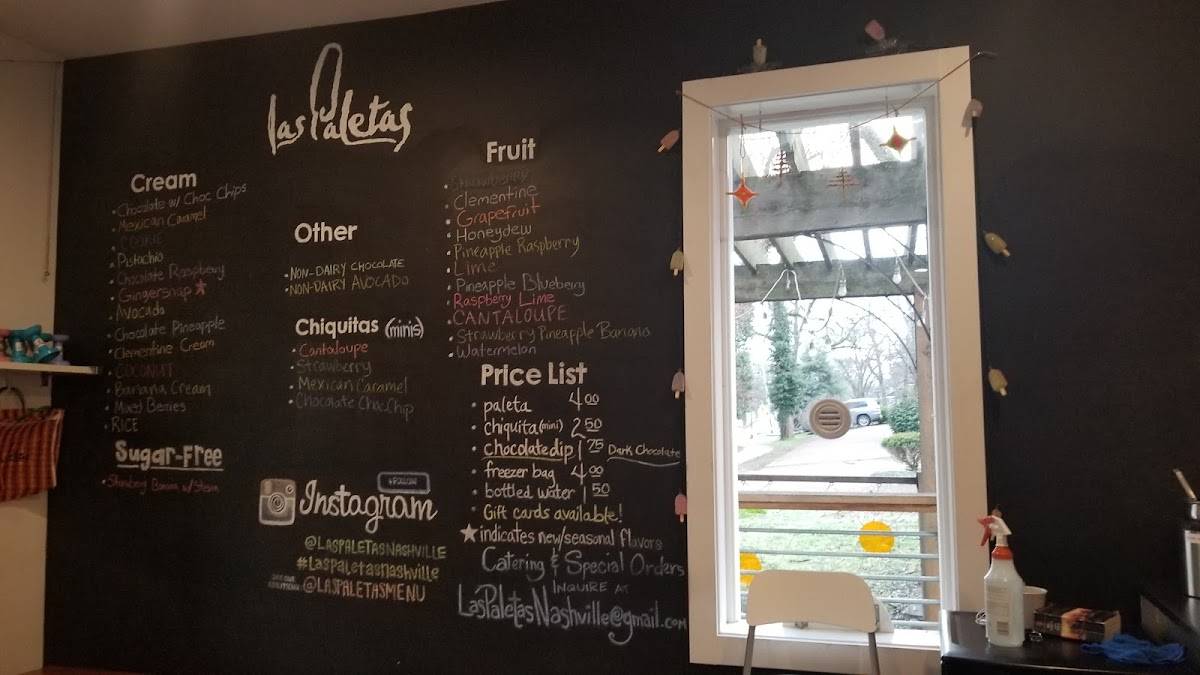 Las Paletas
Cream
• Chocolate w/ Choc Chips
• Mexican Caramel
• COOKIE
• Pistachio
• Chocolate Raspberry
• Gingersnap ★
• Avocado
• Chocolate Pineapple
• Clementine Cream
• COCONUT
• Banana Cream
• Mixed Berries
• RICE
Sugar-Free
• Strawberry Banana w/
Other
• NON-DAIRY CHOCOLATE
• NON-DAIRY AVOCADO
Chiquitas (minis)
• Cantaloupe
• Strawberry
• Mexican Caramel
• Chocolate Choc.Chip
Fruit
• Strawberry
• Clementine
• Grapefruit
• Honeydew
• Pineapple Raspberry
• Lime
• Pineapple Blueberry
• Raspberry Lime
• CANTALOUPE
• Strawberry Pineapple Banana
• Watermelon
Price List
• paleta 4.00
• chiquita (mini) 2.50
• chocolate dip 1.75 Dark Chocolate
• freezer bag 4.00
• bottled water 1.50
• Gift cards available!
★ indicates new/seasonal flavors
Catering & Special Orders
INQUIRE AT
LasPaletasNashville@gmail.com
FOLLOW
Instagram
@LASPALETASNASHVILLE
#Laspaletasnashville
@LASPALETASMENU